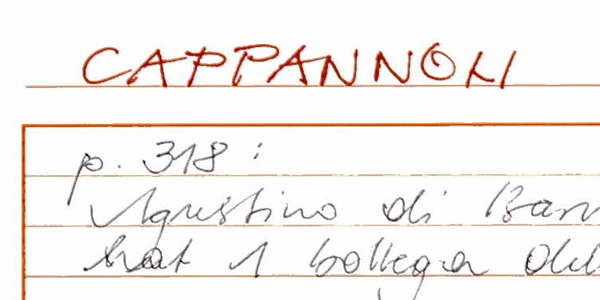 CAPPANNOLI
p. 318:
Agustino di Ban
hat 1 bottega del